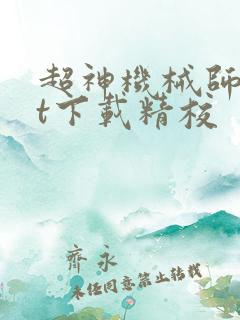 超神機械師
t下載精校
齊永
未经同意禁止转载